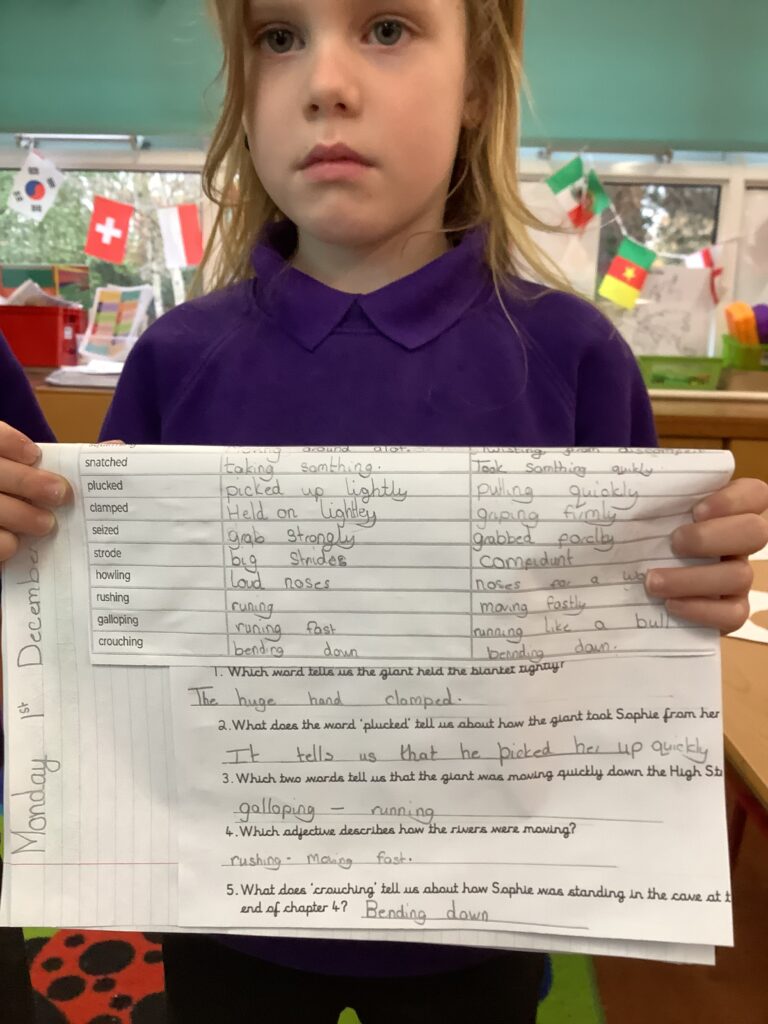 snatched taking somthing. Took somthing quikly.
plucked picked up lightly pulling quickly
clamped Held on lightley griping firmly
seized grab strongly grabbed
strode big strides
howling loud noses noses for a
rushing runing moving fastly
galloping runing fast running like a bull
crouching bending down bennding down.
1. Which word tells us the giant held the blanket tightly?
The huge hand clamped.
2. What does the word 'plucked' tell us about how the giant took Sophie from her
It tells us that he picked her up quickly
3. Which two words tell us that the giant was moving quickly down the High St
galloping – running
4. Which adjective describes how the rivers were moving?
rushing - moving fast.
5. What does 'crouching' tell us about how Sophie was standing in the cave at t
end of chapter 4? Bending down
Monday 1st December